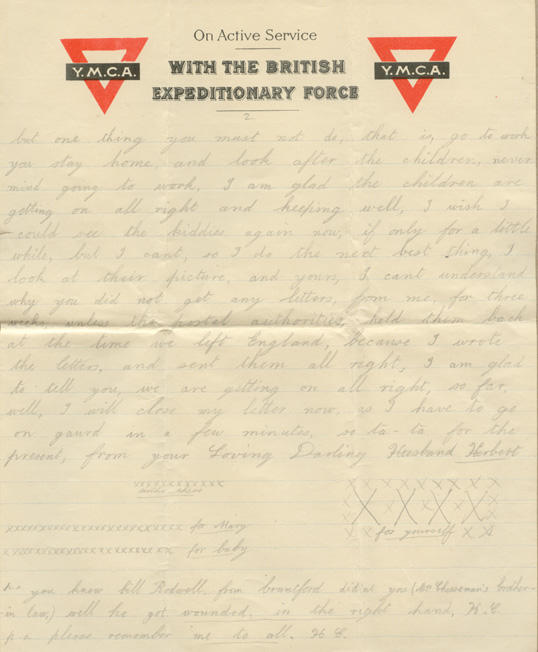 On Active Service
Y.M.C.A.
WITH THE BRITISH
Y.M.C.A.
EXPEDITIONARY FORCE
2.
but one thing you must not do, that is, go to work
you stay home, and look after the children, never
mind going to work, I am glad the children are
getting on all right and keeping well, I wish I
could see the kiddies again now, if only for a little
while, but I cant, so I do the next best thing, I
look at their picture, and yours, I cant understand
why you did not get any letters, from me, for three
weeks, unless the postal authorities, held them back
at the time we left England, because I wrote
the letters, and sent them all right, I am glad
to tell you, we are getting on all right, so far,
well, I will close my letter now, as I have to go
on gaurd in a few minutes, so ta-ta for the
present, from your Loving Darling Husband Herbert
xxxxxxxxxxxxxx
xxxxxxxxxxxxxxxxxxxx for Mary
xxxxxxxxxxxxxxxxxxx for baby
x x x x x x x x
X X X X
x for yourself x x
you know bill Rodwell, from brantford did'nt you (Mr Cheeseman's brother-
in law,) well he got wounded, in the right hand, H.C.
p.s please remember me to all. H C.